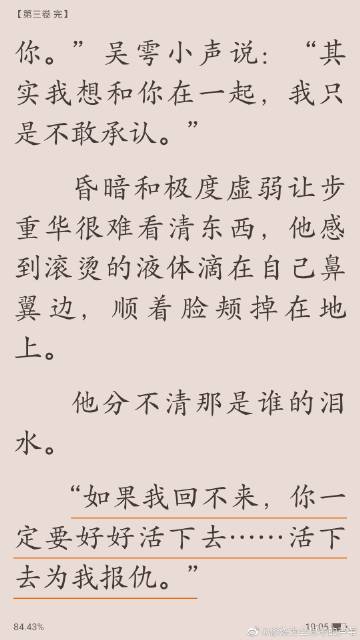 【第三卷 完】
你。”吴雩小声说：“其
实我想和你在一起，我只
是不敢承认。”
昏暗和极度虚弱让步
重华很难看清东西，他感
到滚烫的液体滴在自己鼻
翼边，顺着脸颊掉在地
上。
他分不清那是谁的泪
水。
“如果我回不来，你一
定要好好活下去……活下
去为我报仇。”
84.43%
19:05